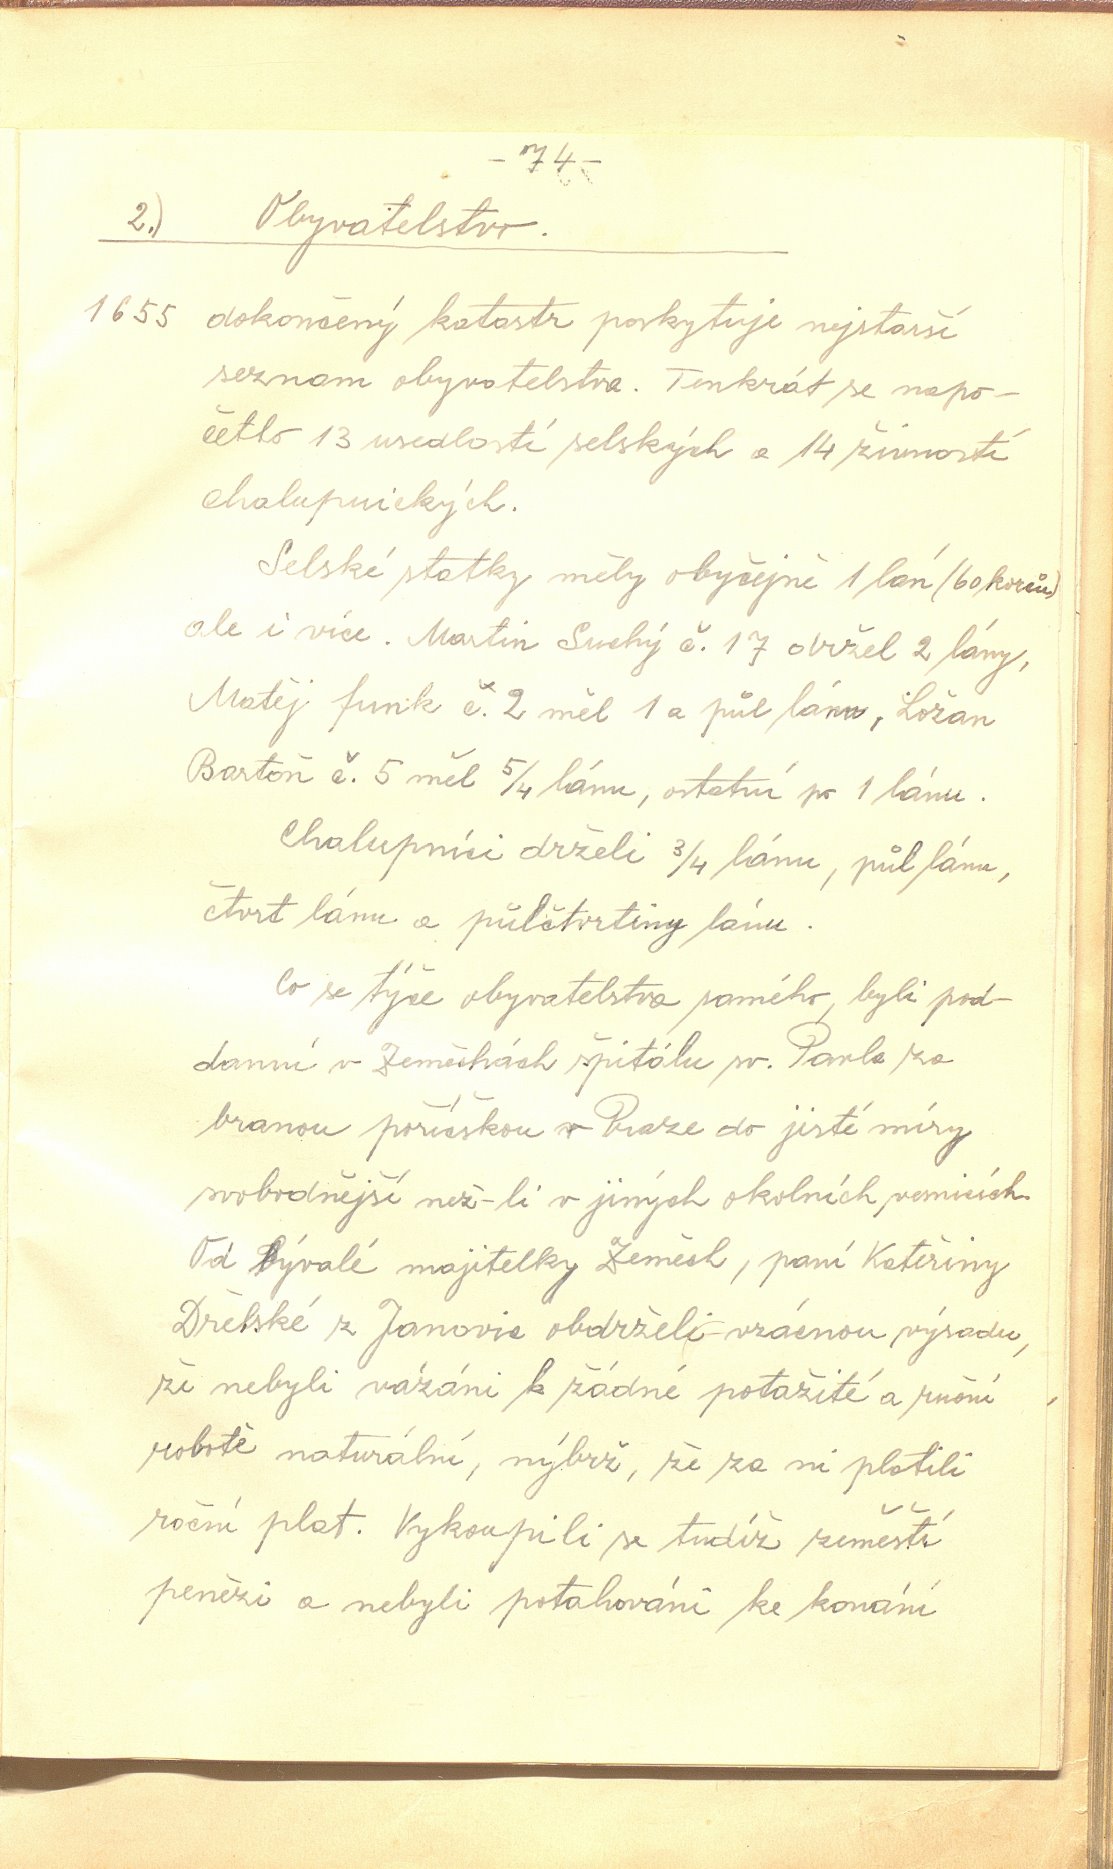 - 74 -
2.) Obyvatelstvo.
1655 dokončený katastr poskytuje nejstarší
seznam obyvatelstva. Tenkrát se napo-
četlo 13 usedlostí selských a 14 živností
chalupnických.
Selské statky měly obyčejně 1 lán (60 korců)
ale i více. Martin Suchý č. 17 držel 2 lány,
Matěj Funk č. 2 měl 1 a půl lánu, Ložan
Bartoň č. 5 měl 5/4 lánu, ostatní po 1 lánu.
Chalupníci drželi 3/4 lánu, půl lánu,
čtvrt lánu a půlčtvrtiny lánu.
Co se týče obyvatelstva samého, byli pod-
danní v Zeměchách špitálu sv. Pavla za
branou poříčskou v Praze do jisté míry
svobodnější než-li v jiných okolních vesnicích.
Od bývalé majitelky Zeměch, paní Kateřiny
z Janovic obdrželi vzácnou výsadu,
že nebyli vázáni k žádné potažité a ruční
robotě naturální, nýbrž, že za ni platili
roční plat. Vykoupili se tudíž zeměští
penězi a nebyli potahováni ke konání